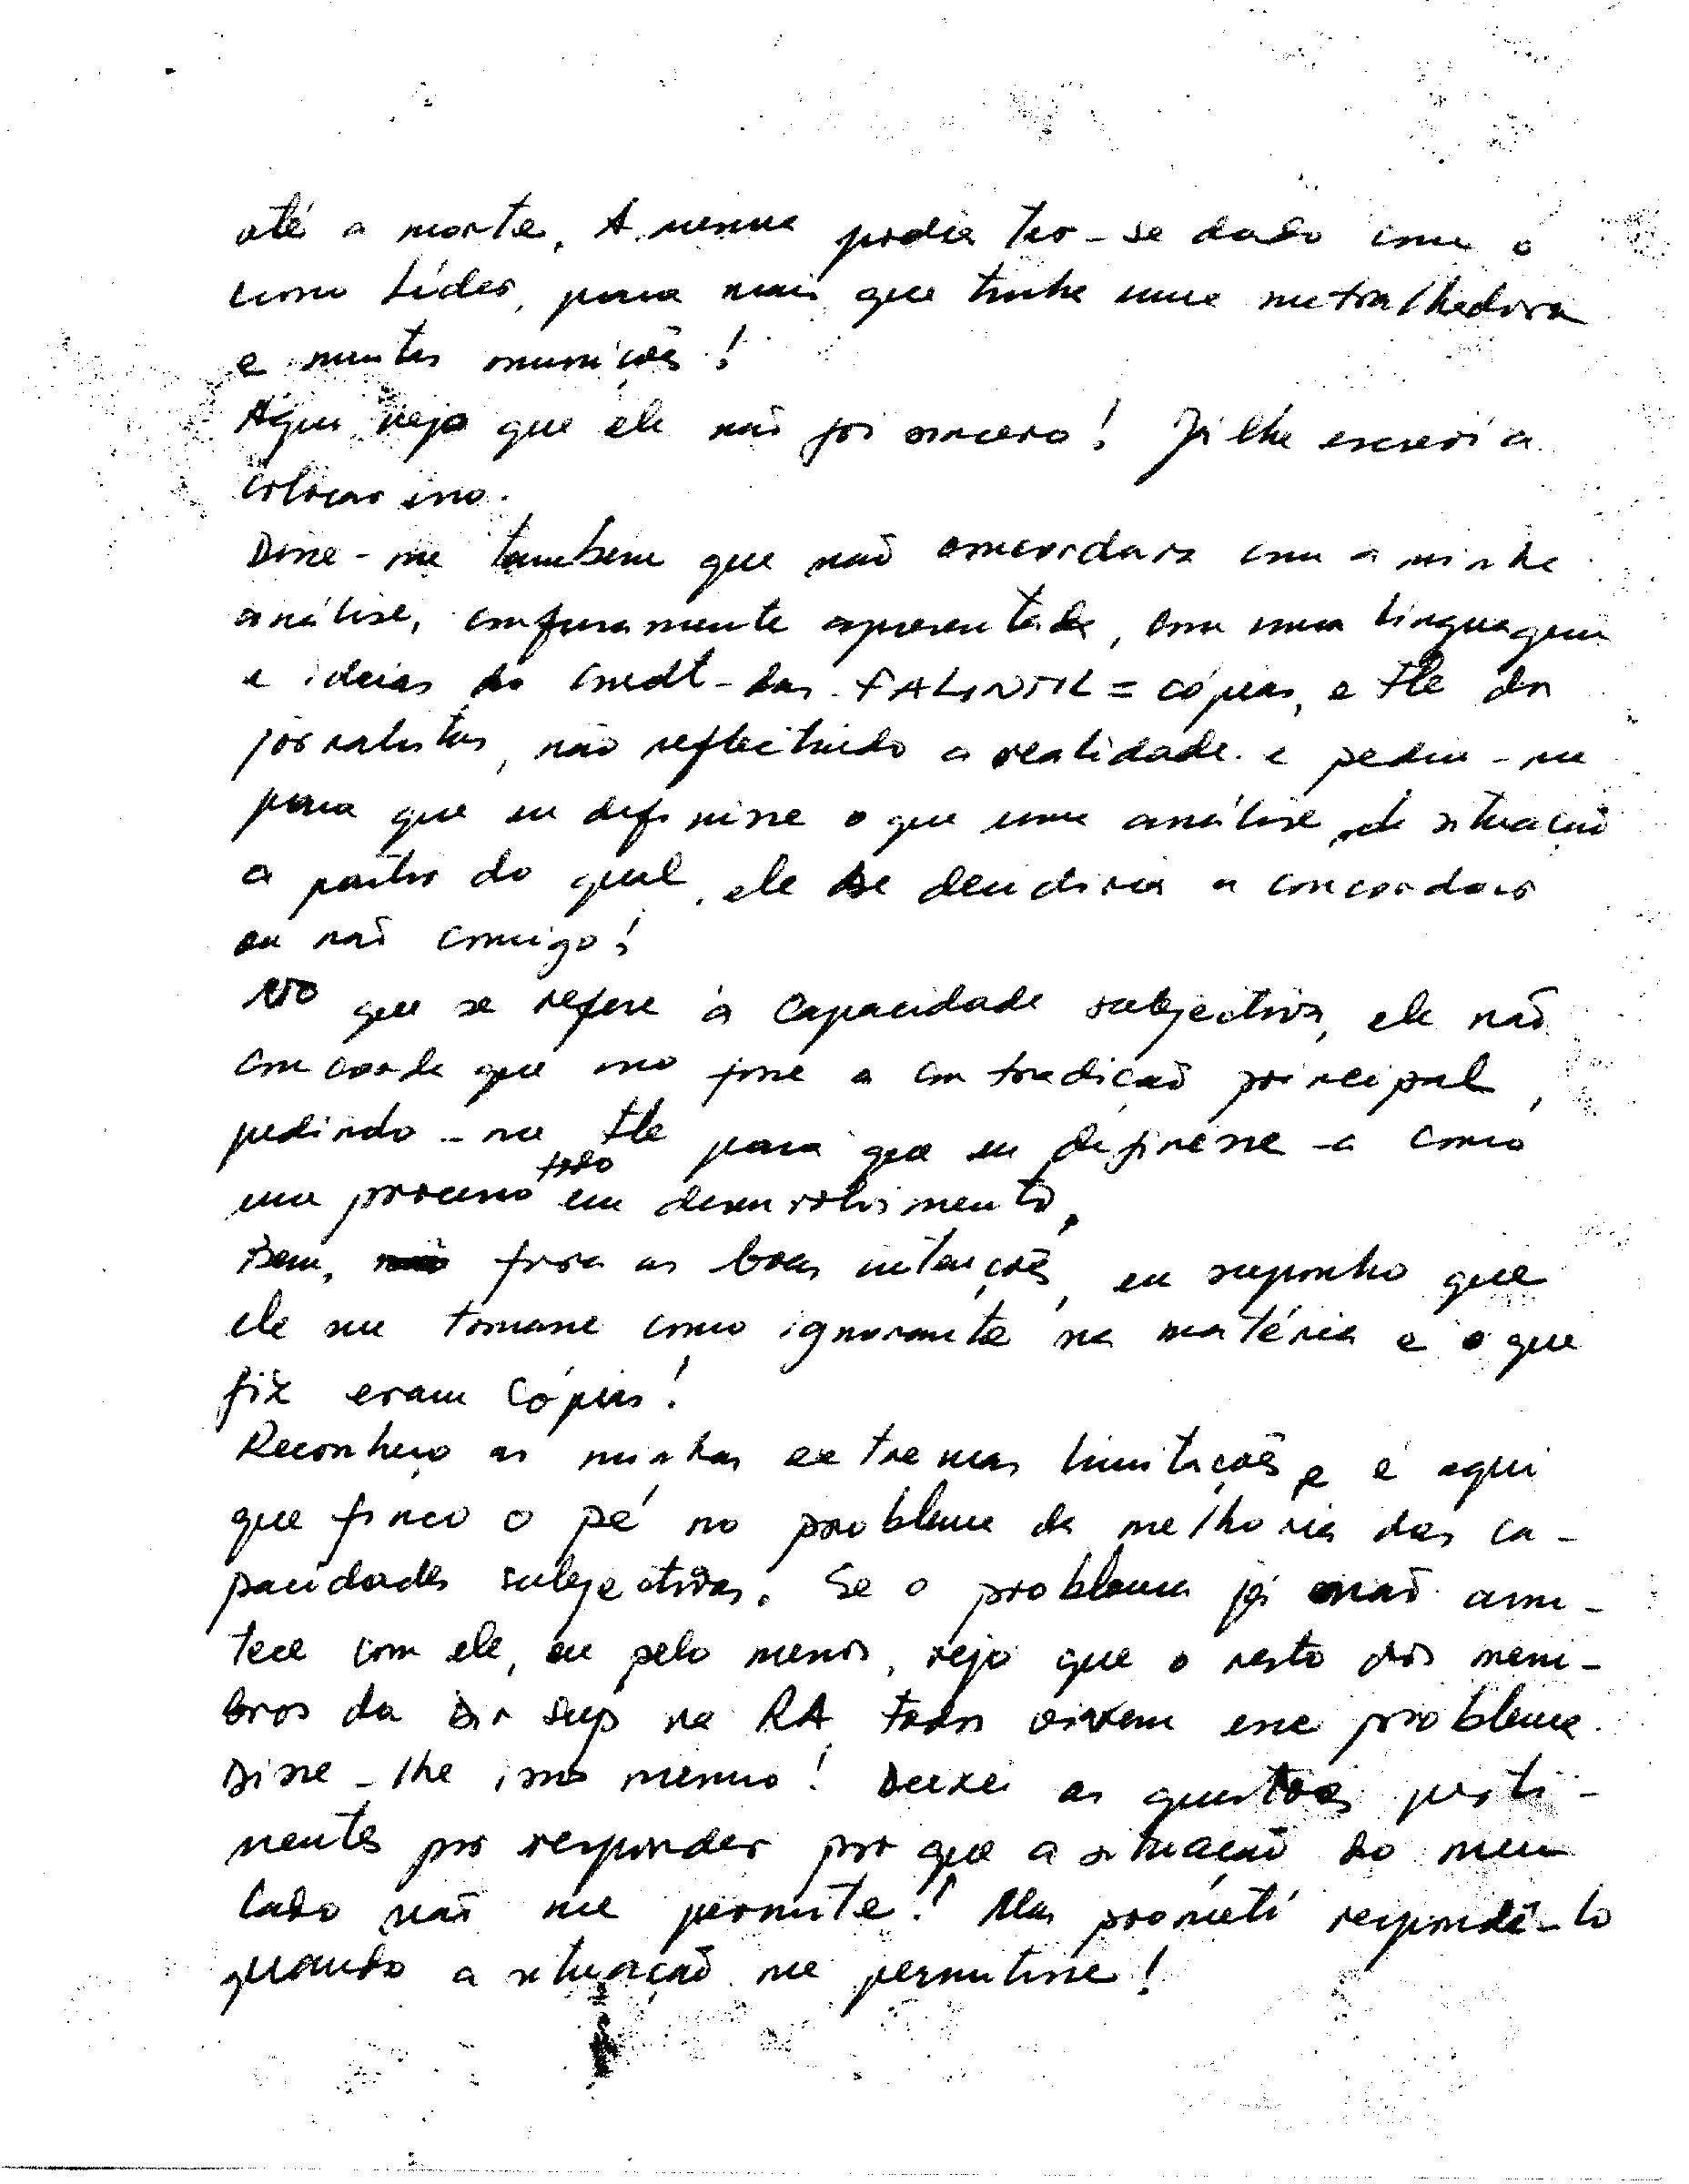 até a morte. A mesma podia ter-se dado com o
como Líder, para mais que tinha uma metralhadora
e muitas munições!
Aqui vejo que ele não foi sincero! Já lhe escrevi a
colocar isso.
Disse-me também que não concordara com a minha
análise, confusamente apresentada, com uma linguagem
e ideias do Cmdt-das FALINTIL = cópias, e tbe dos
jornalistas, não reflectindo a realidade e pediu-me
para que eu definisse o que uma análise de situação
a partir do qual, ele se decidiria a concordar
ou não comigo!
No que se refere à capacidade subjectiva, ele não
concorda que isso fosse a contradição principal,
pedindo-me tbe para que eu definisse-a como
um processo todo em desenvolvimento.
Bem, fora as boas intenções, eu suponho que
ele me tomasse como ignorante na matéria e o que
fiz eram cópias!
Reconheço as minhas extremas limitações e é aqui
que finco o pé no problema da melhoria das ca-
pacidades subjectivas. Se o problema já não acon-
tece com ele, eu pelo menos, vejo que o resto dos mem-
bros da Dir Sup na RA, todos vivem esse problema.
Disse-lhe isso mesmo! Deixei as questões perti-
nentes por responder por que a situação do meu
lado não me permite! Mas prometi respondê-lo
quando a situação me permitisse!